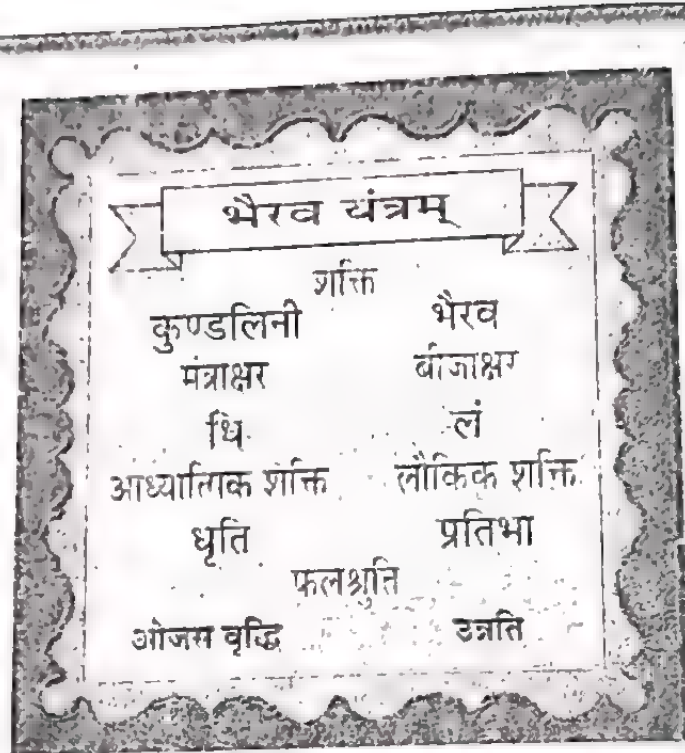 भैरव यंत्रम्
शक्ति
कुण्डलिनी भैरव
मंत्राक्षर बीजाक्षर
धि लं
आध्यात्मिक शक्ति लौकिक शक्ति
धृति प्रतिभा
फलश्रुति
ओजस वृद्धि उन्नति